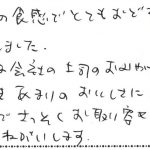 の食感でとてもおどろ
しました.
は会社の上司のおみや
まりのおいしさに
でさっそくお取り寄せ
ねがいします.